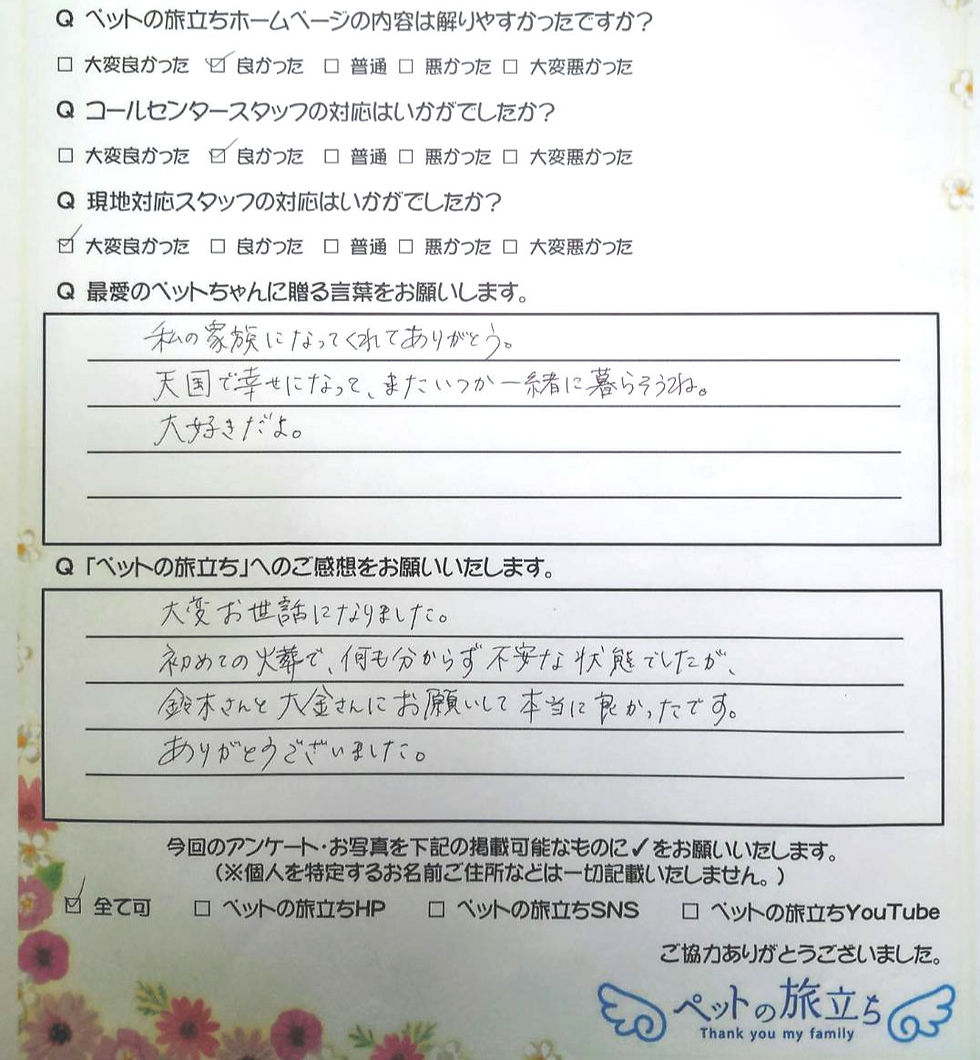 Q ペットの旅立ちホームページの内容は解りやすかったですか？
□ 大変良かった ☑ 良かった □ 普通 □ 悪かった □ 大変悪かった
Q コールセンタースタッフの対応はいかがでしたか？
□ 大変良かった ☑ 良かった □ 普通 □ 悪かった □ 大変悪かった
Q 現地対応スタッフの対応はいかがでしたか？
☑ 大変良かった □ 良かった □ 普通 □ 悪かった □ 大変悪かった
Q 最愛のペットちゃんに贈る言葉をお願いします。
私の家族になってくれてありがとう。
天国で幸せになって、またいつか一緒に暮らそうね。
大好きだよ。
Q 「ペットの旅立ち」へのご感想をお願いいたします。
大変お世話になりました。
初めての火葬で、何も分からず不安な状態でしたが、
鈴木さんと大金さんにお願いして本当に良かったです。
ありがとうございました。
今回のアンケート・お写真を下記の掲載可能なものに✓をお願いいたします。
（※個人を特定するお名前ご住所などは一切記載いたしません。）
☑ 全て可 □ ペットの旅立ちHP □ ペットの旅立ちSNS □ ペットの旅立ちYouTube
ご協力ありがとうございました。
ペットの旅立ち
Thank you my family